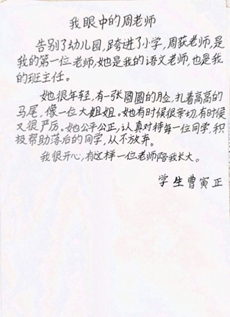 我眼中的周老师
告别了幼儿园,跨进了小学,周荻老师,是
我的第一位老师,她是我的语文老师,也是我
的班主任。
她很年轻,有一张圆圆的脸,扎着高高的
马尾,像一位大姐姐。她有时候很亲切,有时候
又很严厉。她公平公正,认真对待每一位同学,积
极帮助落后的同学,从不放弃。
我很开心,有这样一位老师陪我长大。
学生曹寅正